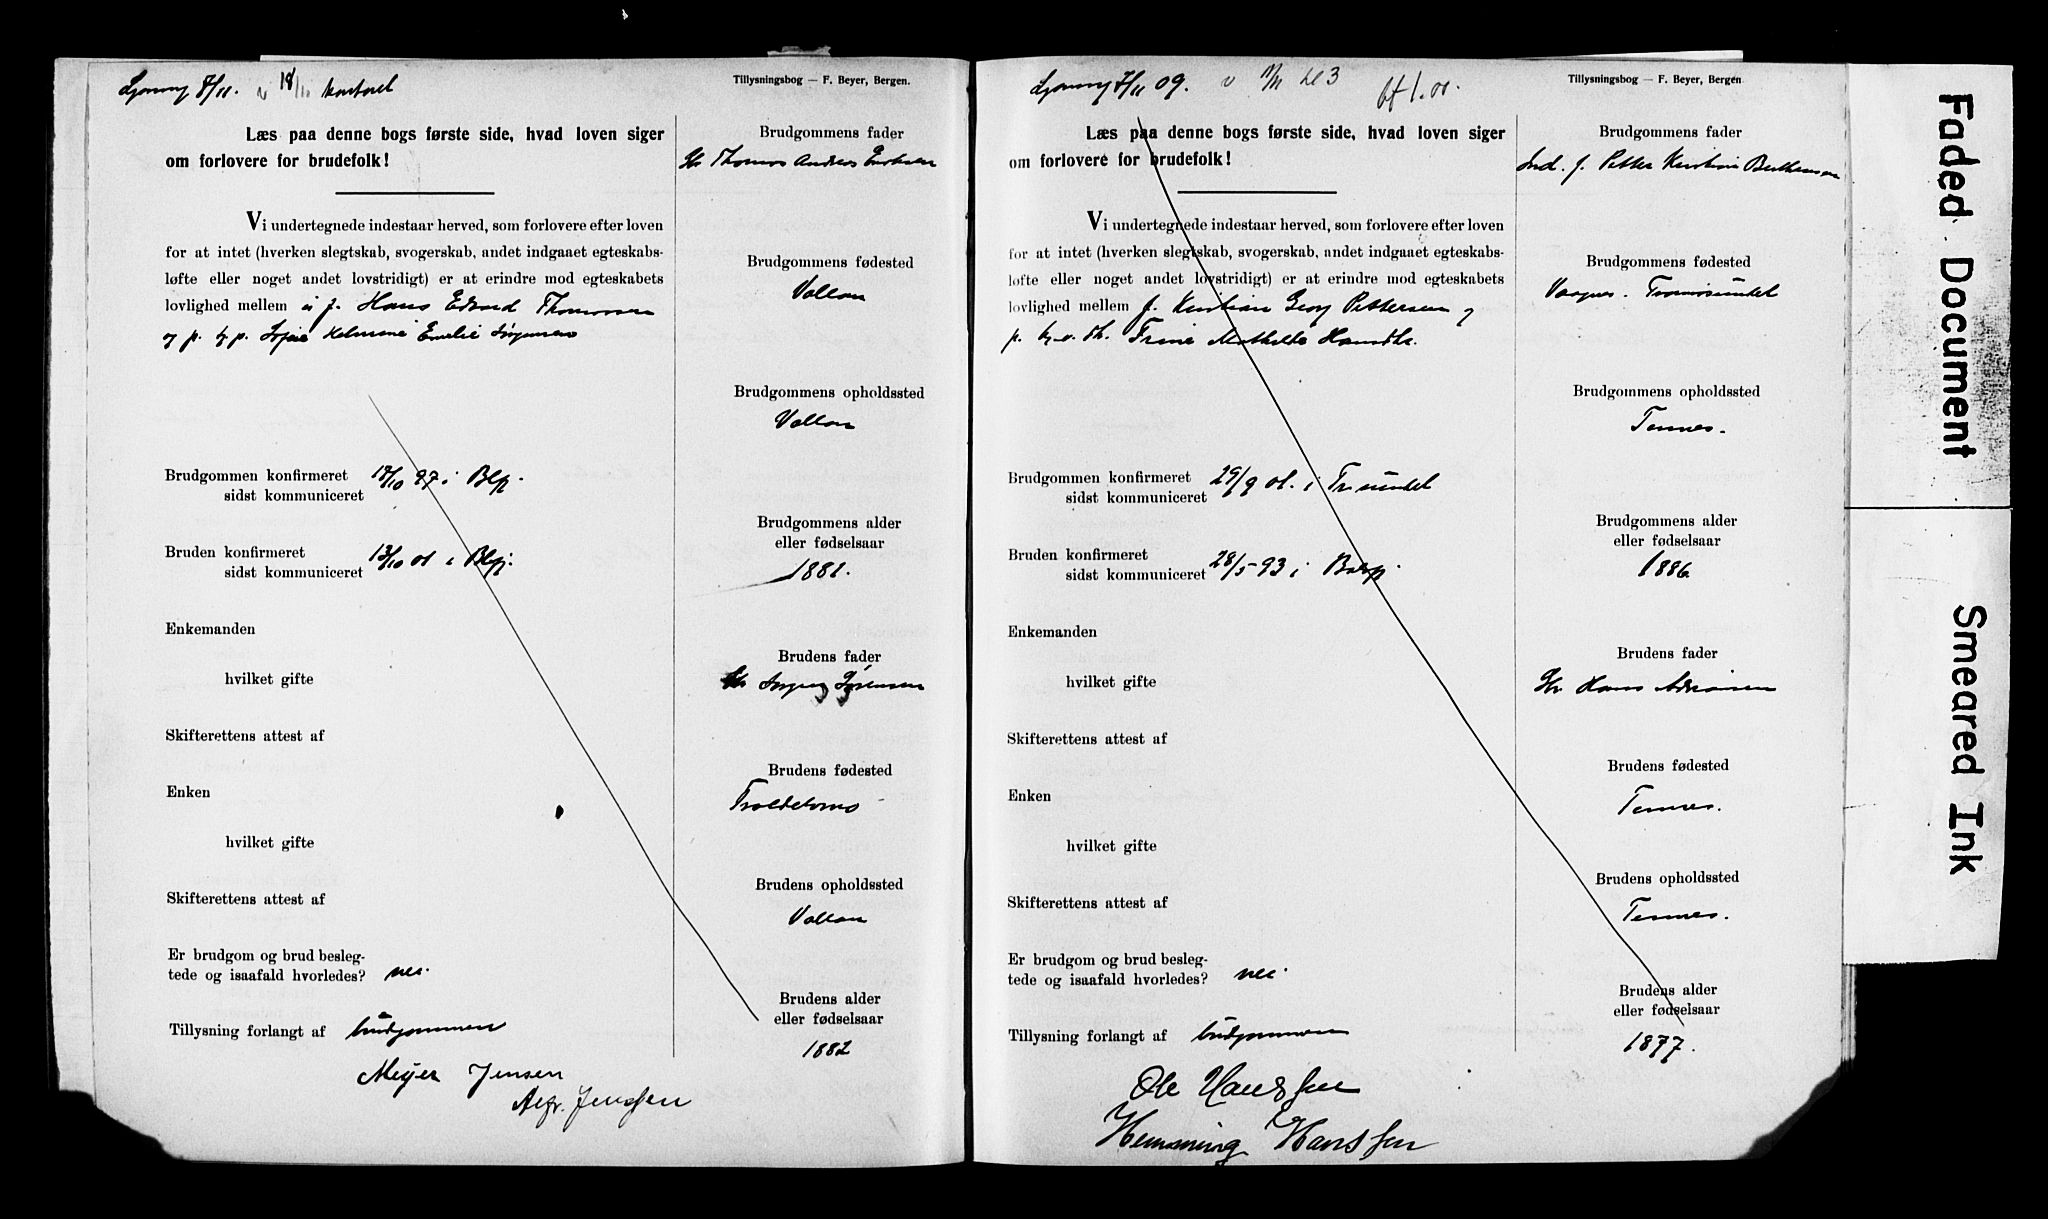 8/11. 18/11 kontoret
Tillysningsbog — F. Beyer, Bergen.
Læs paa denne bogs første side, hvad loven siger
om forlovere for brudefolk!
Vi undertegnede indestaar herved, som forlovere efter loven
for at intet (hverken slegtskab, svogerskab, andet indgaaet egteskabs-
løfte eller noget andet lovstridigt) er at erindre mod egteskabets
lovlighed mellem Hans Edvard Thomassen
og p. Emelie Jørgensen
Brudgommen konfirmeret 17/10 97 i Blfj.
sidst kommuniceret
Bruden konfirmeret 13/10 01 i Blfj.
sidst kommuniceret
Enkemanden
hvilket gifte
Skifterettens attest af
Enken
hvilket gifte
Skifterettens attest af
Er brudgom og brud besleg-
tede og isaafald hvorledes? nei.
Tillysning forlangt af brudgommen
Brudgommens fader
Thomas Andreas
Brudgommens fødested
Vollan
Brudgommens opholdssted
Vollan
Brudgommens alder
eller fødselsaar
1881.
Brudens fader
Jørgen Sørensen
Brudens fødested
Brudens opholdssted
Vollan
Brudens alder
eller fødselsaar
1882
Meyer Jensen
Jenssen
7/11 09.
Tillysningsbog — F. Beyer, Bergen.
Læs paa denne bogs første side, hvad loven siger
om forlovere for brudefolk!
Vi undertegnede indestaar herved, som forlovere efter loven
for at intet (hverken slegtskab, svogerskab, andet indgaaet egteskabs-
løfte eller noget andet lovstridigt) er at erindre mod egteskabets
lovlighed mellem Kristian Georg Pettersen og
p. Trine Mathilde Hansdtr.
Brudgommen konfirmeret 29/9 01. i Tr.sundet
sidst kommuniceret
Bruden konfirmeret 28/5 93 i
sidst kommuniceret
Enkemanden
hvilket gifte
Skifterettens attest af
Enken
hvilket gifte
Skifterettens attest af
Er brudgom og brud besleg-
tede og isaafald hvorledes? nei.
Tillysning forlangt af brudgommen
Brudgommens fader
Ind. f. Petter Kristian
Brudgommens fødested
Vaagnes. Tromsøsundet
Brudgommens opholdssted
Tennes.
Brudgommens alder
eller fødselsaar
1886.
Brudens fader
Hans Adriansen
Brudens fødested
Tennes.
Brudens opholdssted
Tennes.
Brudens alder
eller fødselsaar
1877.
Ole Hanssen
Hemming Hanssen
Faded Document
Smeared Ink